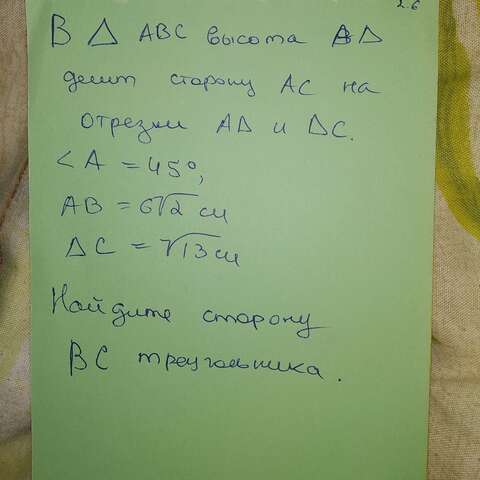 2.6
В △ ABC высота BD
делит сторону AC на
отрезки AD и DC.
<A = 45°,
AB = 6√2 см
DC = √13 см
Найдите сторону
BC треугольника.